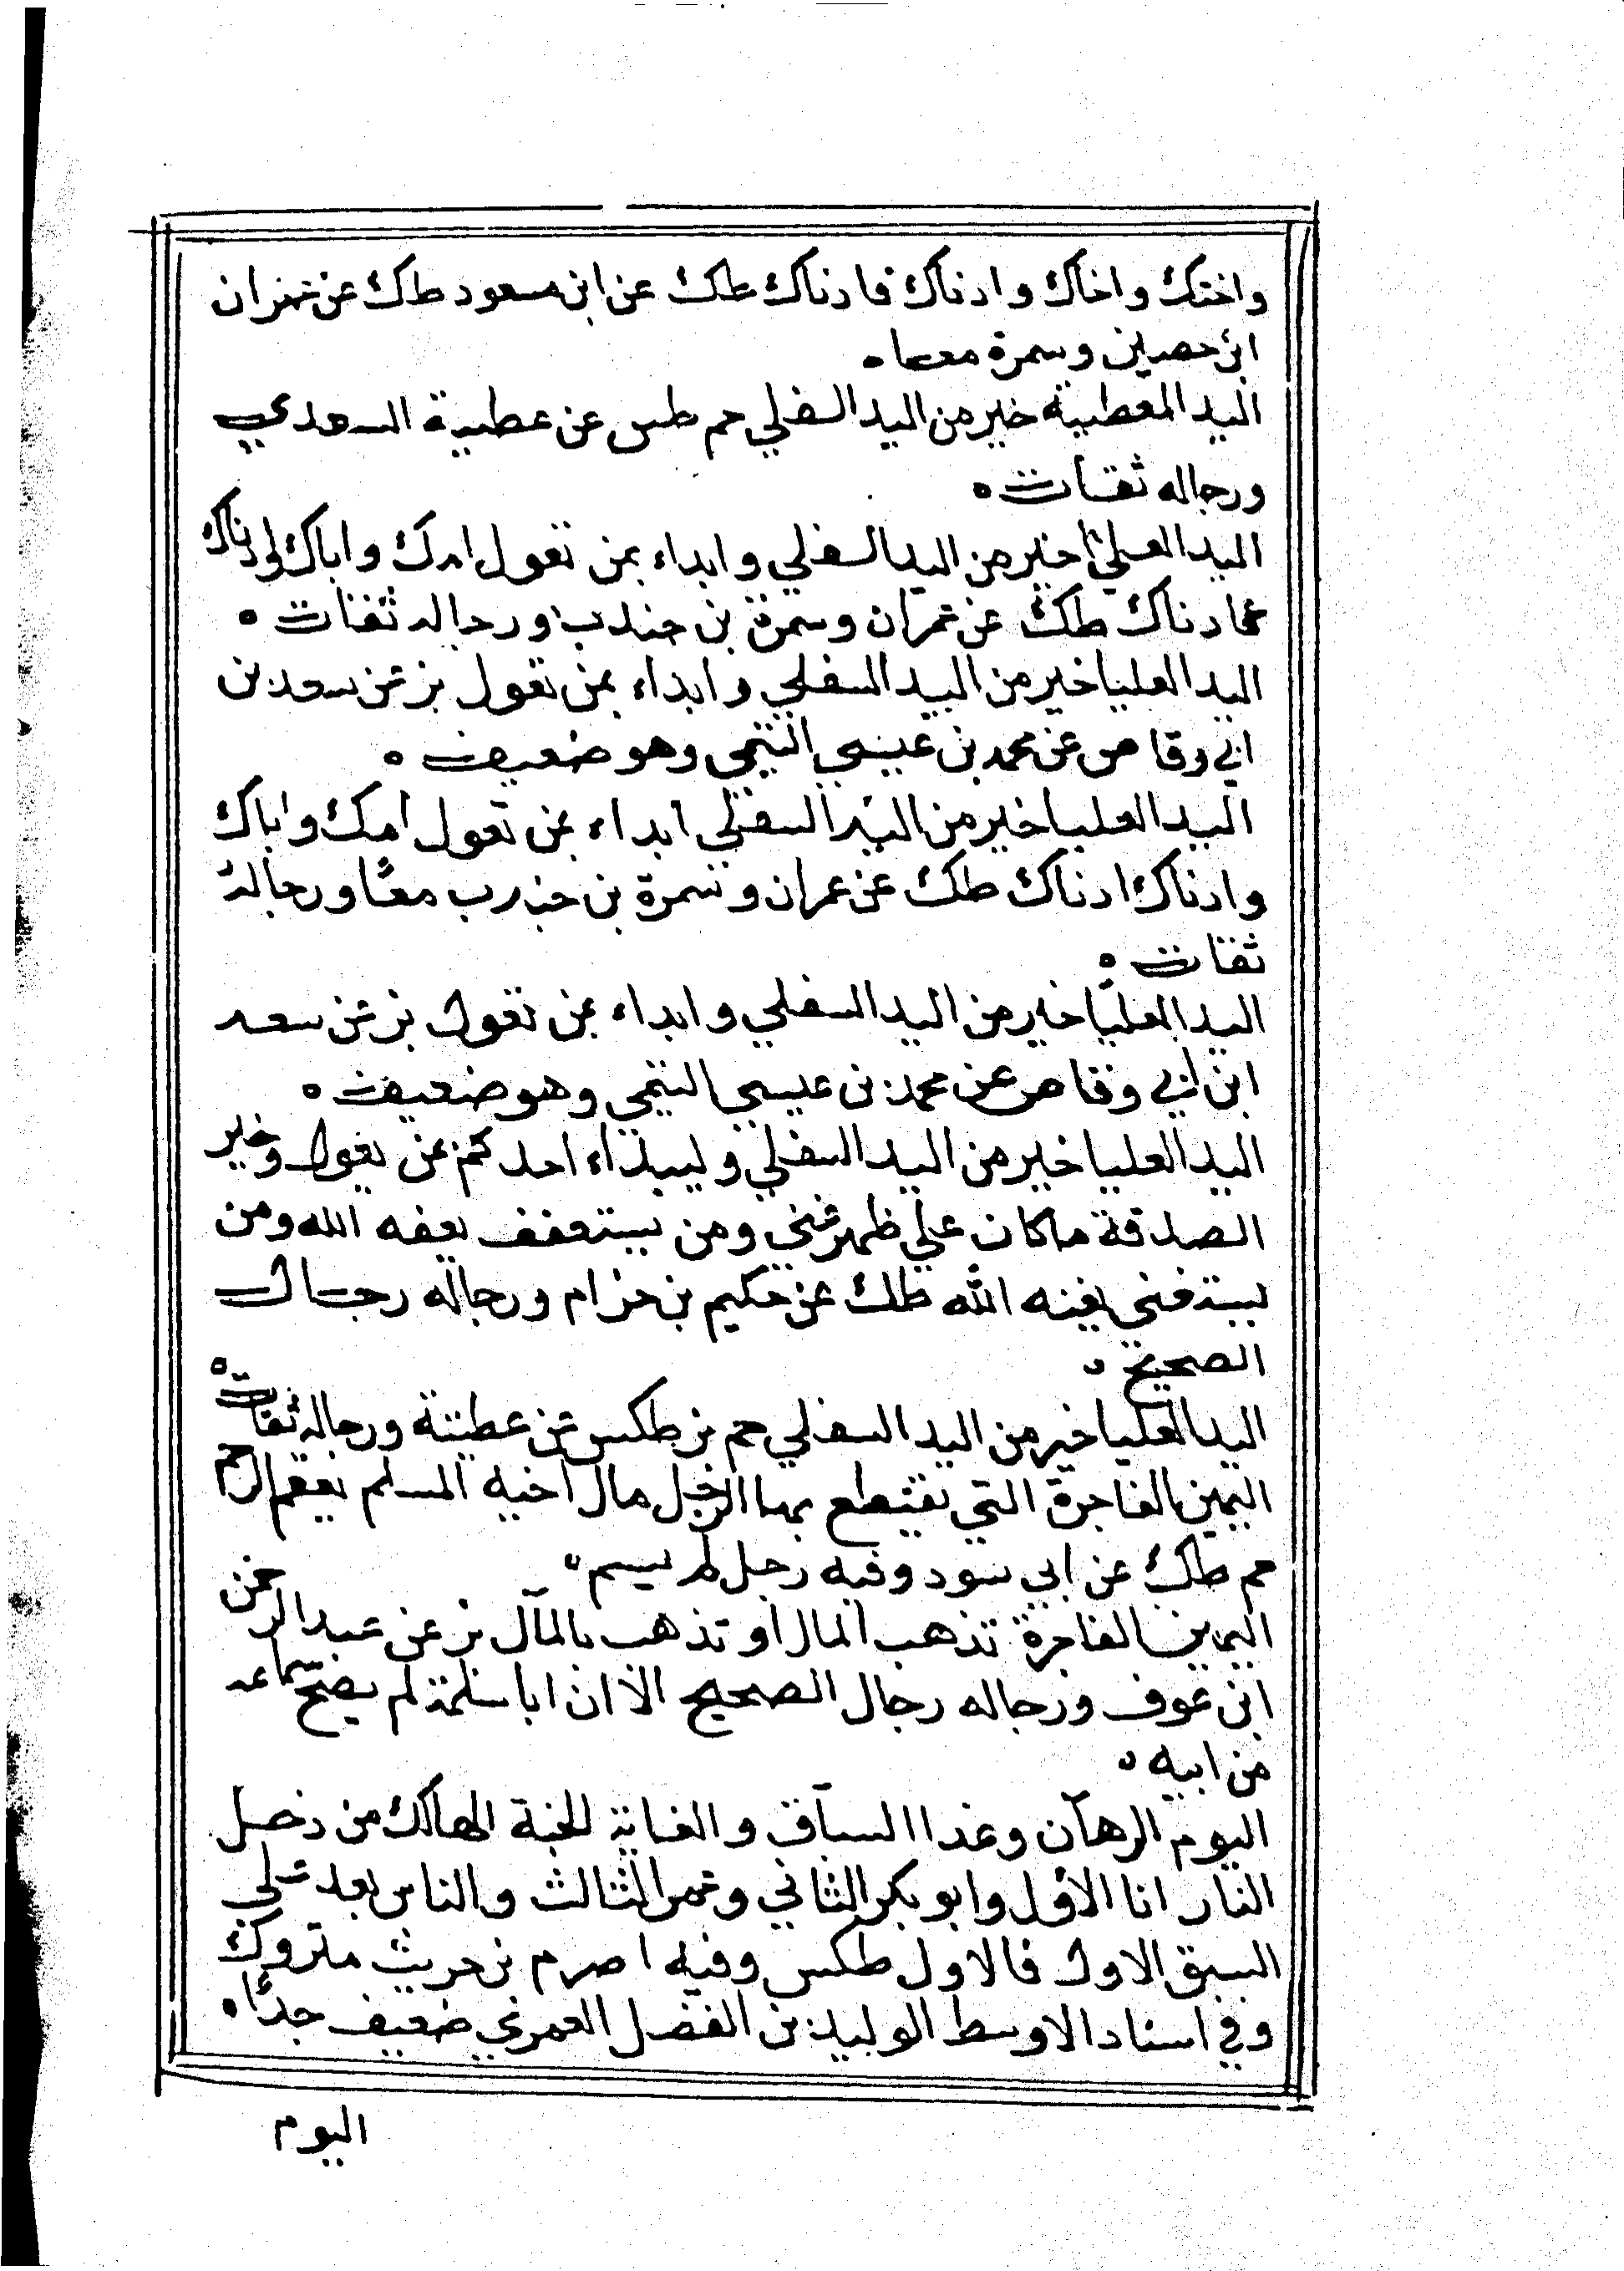 واختك واخاك وادناك فادناك طك عن ابن مسعود طك عن عمران
ابن حصين وسمرة معا ه
اليد المعطية خير من اليد السفلي حم طس عن عطية السعدي
ورجاله ثقات ه
اليد العليا خير من اليد السفلي وابداء بمن تعول امك واباك وادناك
فادناك طك عن عمران وسمرة بن جندب ورجاله ثقات ه
اليد العليا خير من اليد السفلي وابداء بمن تعول بز عن سعد بن
ابي وقاص عن محمد بن عيسي التيمي وهو ضعيف ه
اليد العليا خير من اليد السفلي ابداء بمن تعول امك واباك
وادناك ادناك طك عن عمران وسمرة بن جندب معًا ورجاله
ثقات ه
اليد العليا خير من اليد السفلي وابداء بمن تعول بز عن سعد
ابن ابي وقاص عن محمد بن عيسي التيمي وهو ضعيف ه
اليد العليا خير من اليد السفلي وليبداء احدكم بمن يعول وخير
الصدقة ماكان علي ظهر غني ومن يستعفف يعفه الله ومن
يستغني يغنه الله طك عن حكيم بن حزام ورجاله رجال
الصحيح ه
اليد العليا خير من اليد السفلي حم بز طكس عن عطية ورجاله ثقات ه
اليمين الفاجرة التي يقتطع بها الرجل مال اخيه المسلم يعقم الرحم
حم طك عن ابي سود وفيه رجل لم يسم ه
اليمين الفاجرة تذهب المال او تذهب بالمال بز عن عبد الرحمن
ابن عوف ورجاله رجال الصحيح الا ان ابا سلمة لم يصح سماعه
من ابيه ه
اليوم الرهان وغدا السباق والغاية الجنة الهالك من دخل
النار انا الاول وابو بكر الثاني وعمر الثالث والناس بعد علي
السبق الاول فالاول طكس وفيه اصرم بن حريث متروك
وفي اسناد الاوسط الوليد بن الفضل العمري ضعيف جدًا ه
اليوم